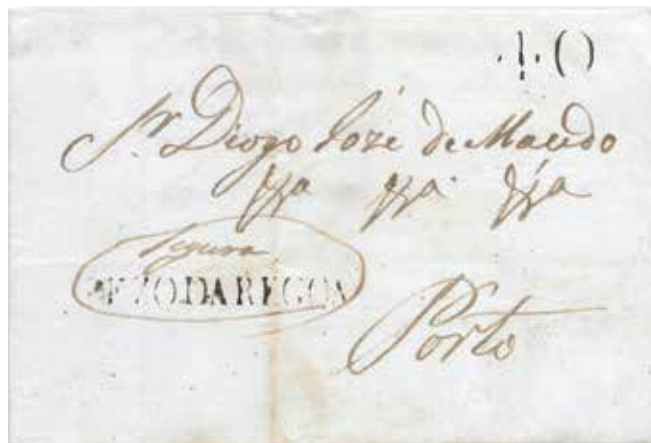 Sr. Diogo Joze de Macedo
Segura
PEZO.DAREGOA
Porto